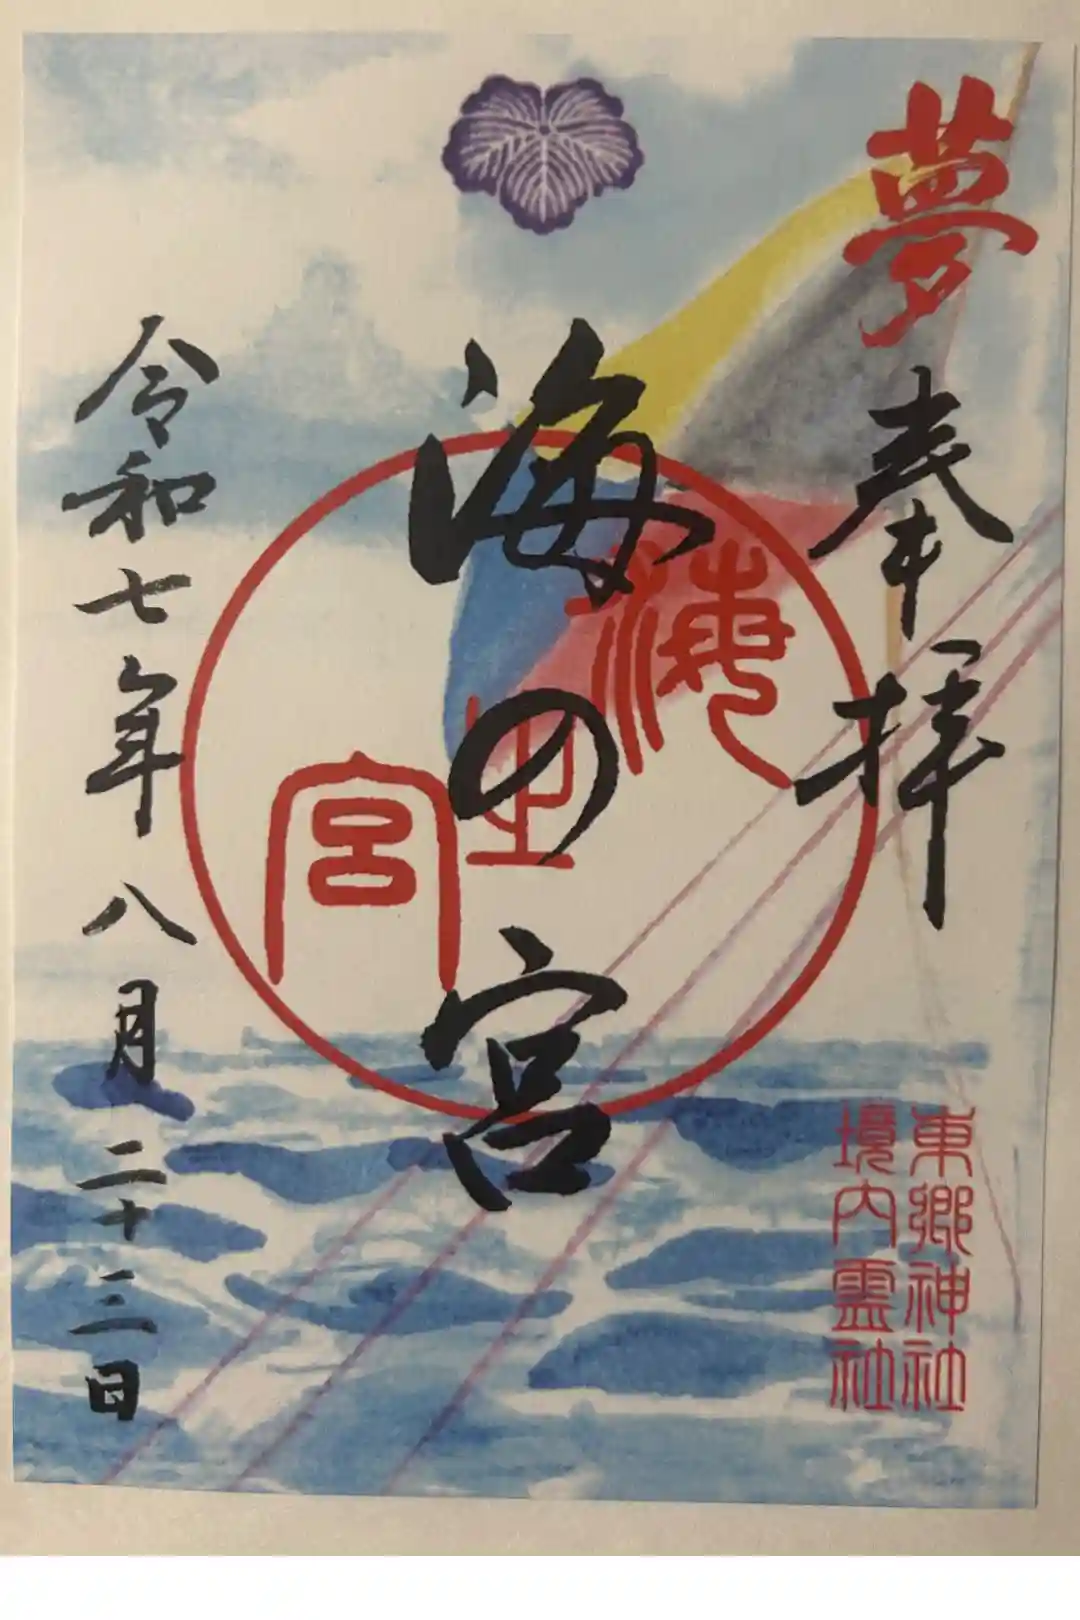 夢
奉拝
海の宮
海之宮
令和七年八月二十三日
東郷神社
境内霊社